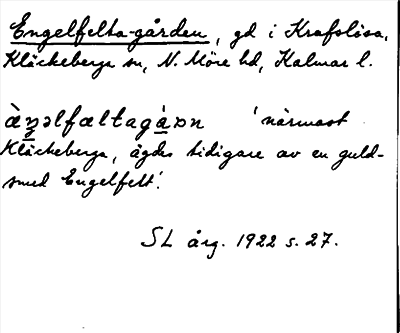 Engelfelta-gården, gd i Krafslösa,
Kläckeberga sn, N. Möre hd, Kalmar l.
àŋəlfæltagàɒn 'närmast
Kläckeberga, ägdes tidigare av en guld-
smed Engelfelt'.
SL årg. 1922 s. 27.